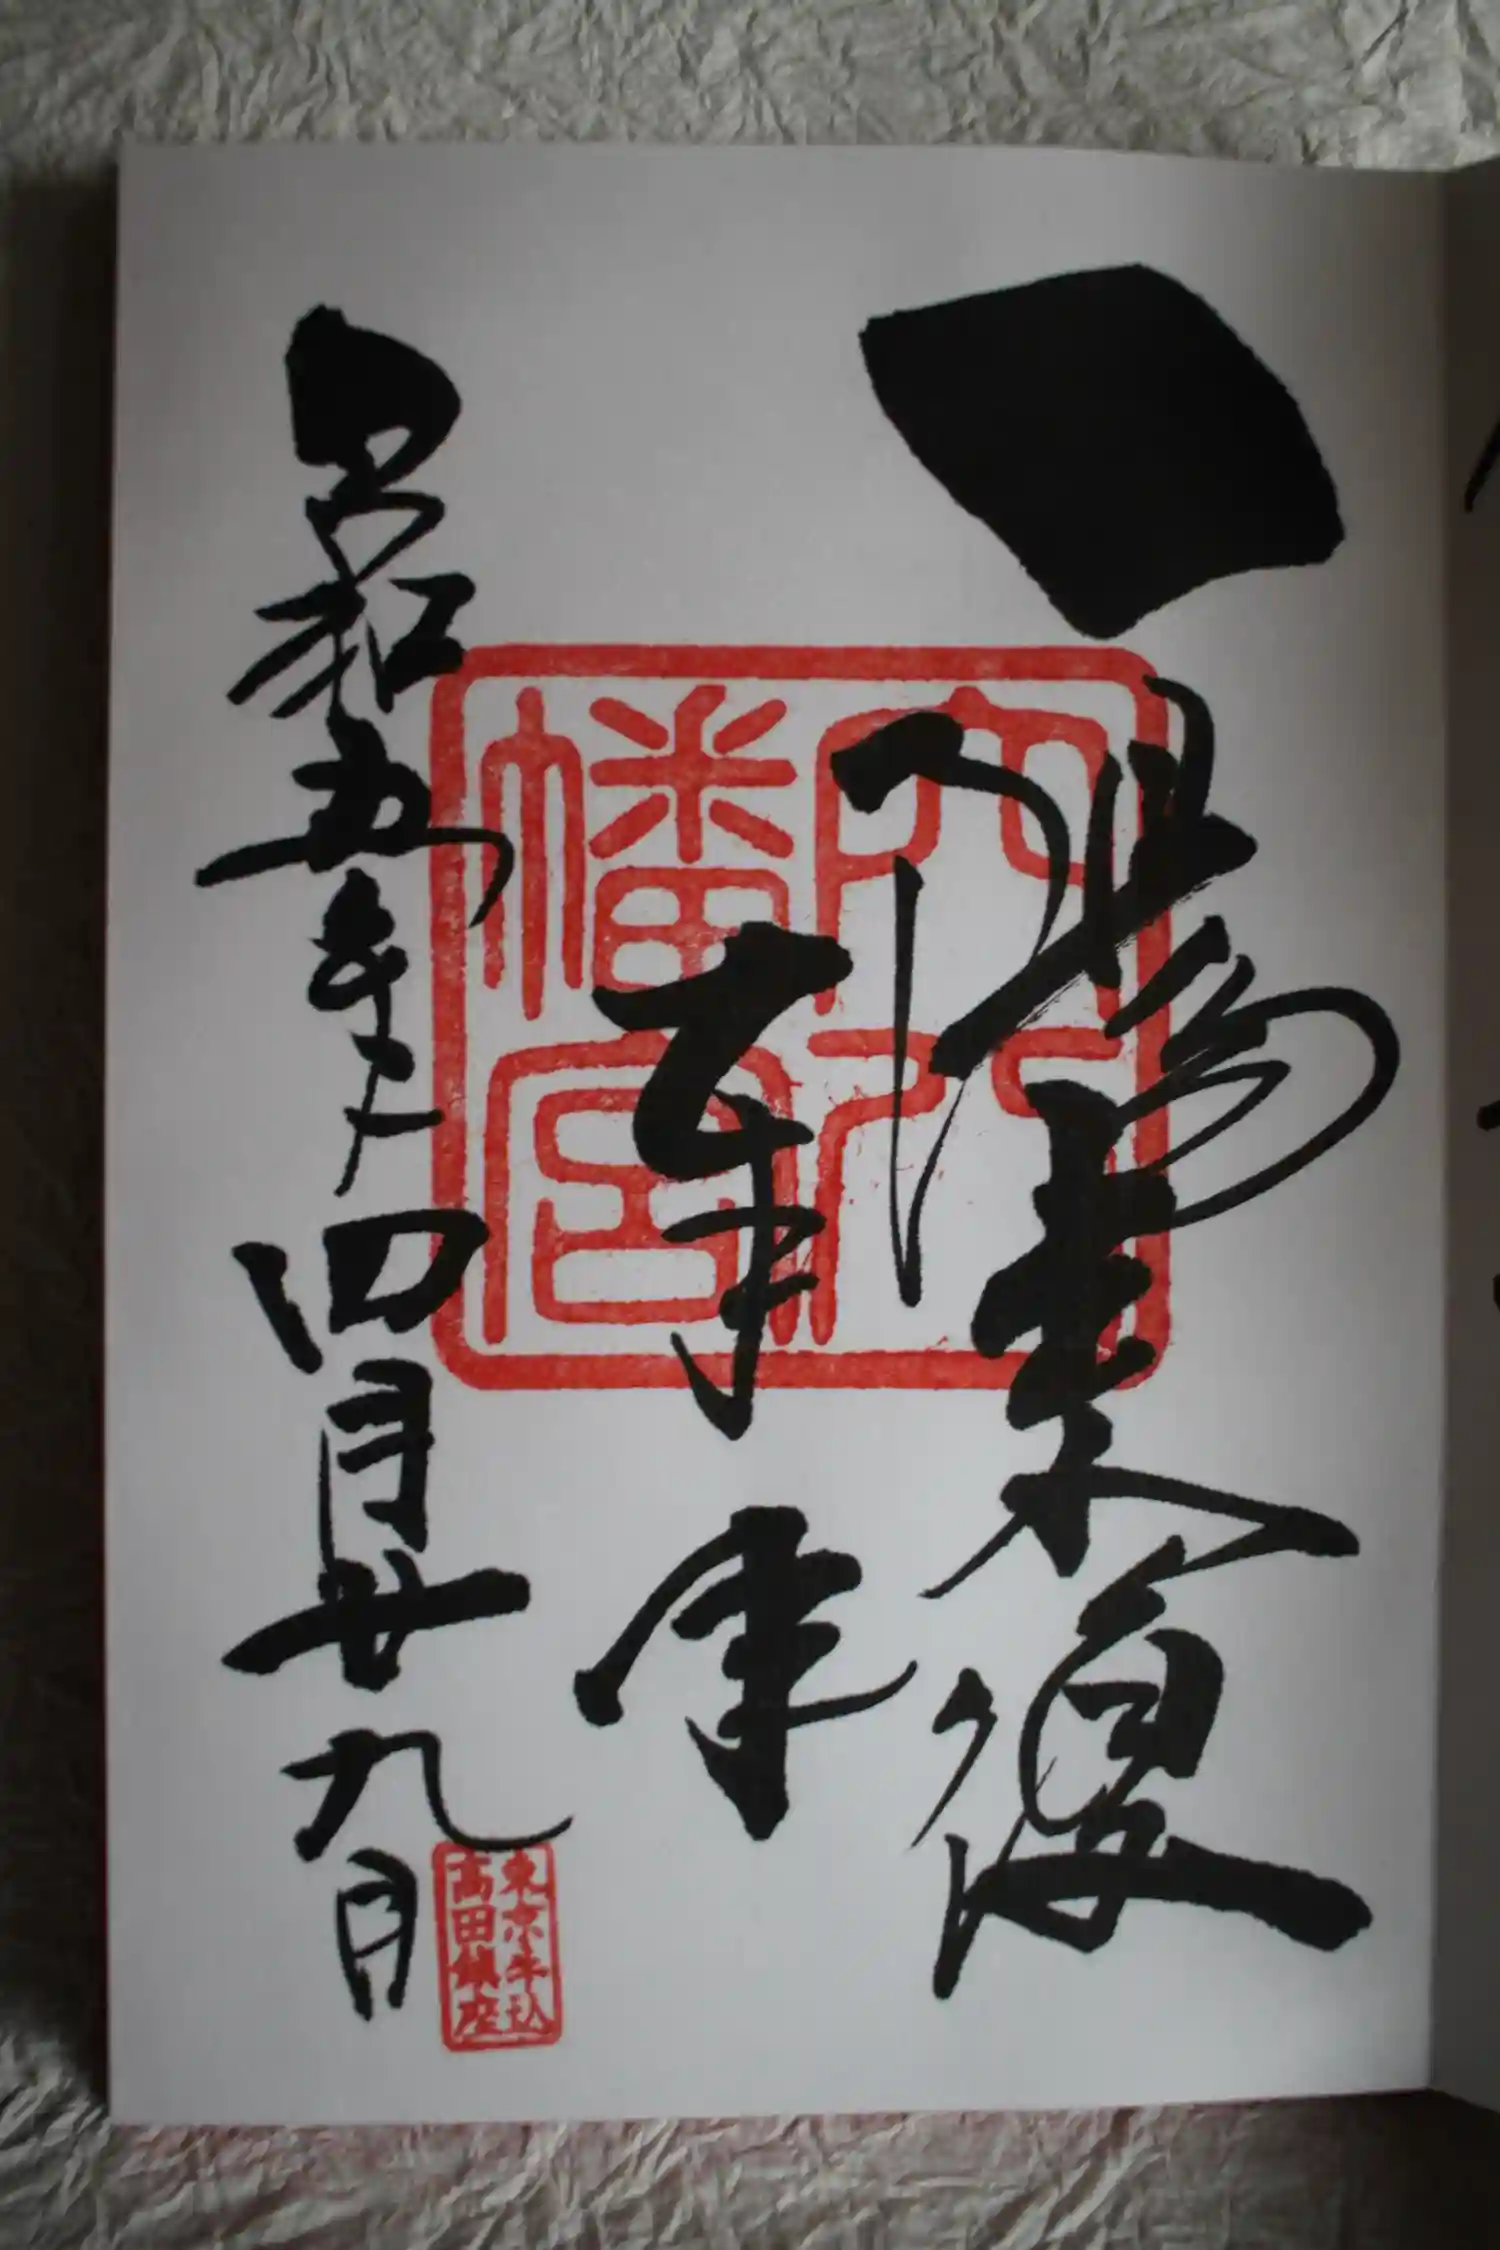 一陽来復
穴八
幡宮
和五年四月廿九日
東京牛込
高田鎮座